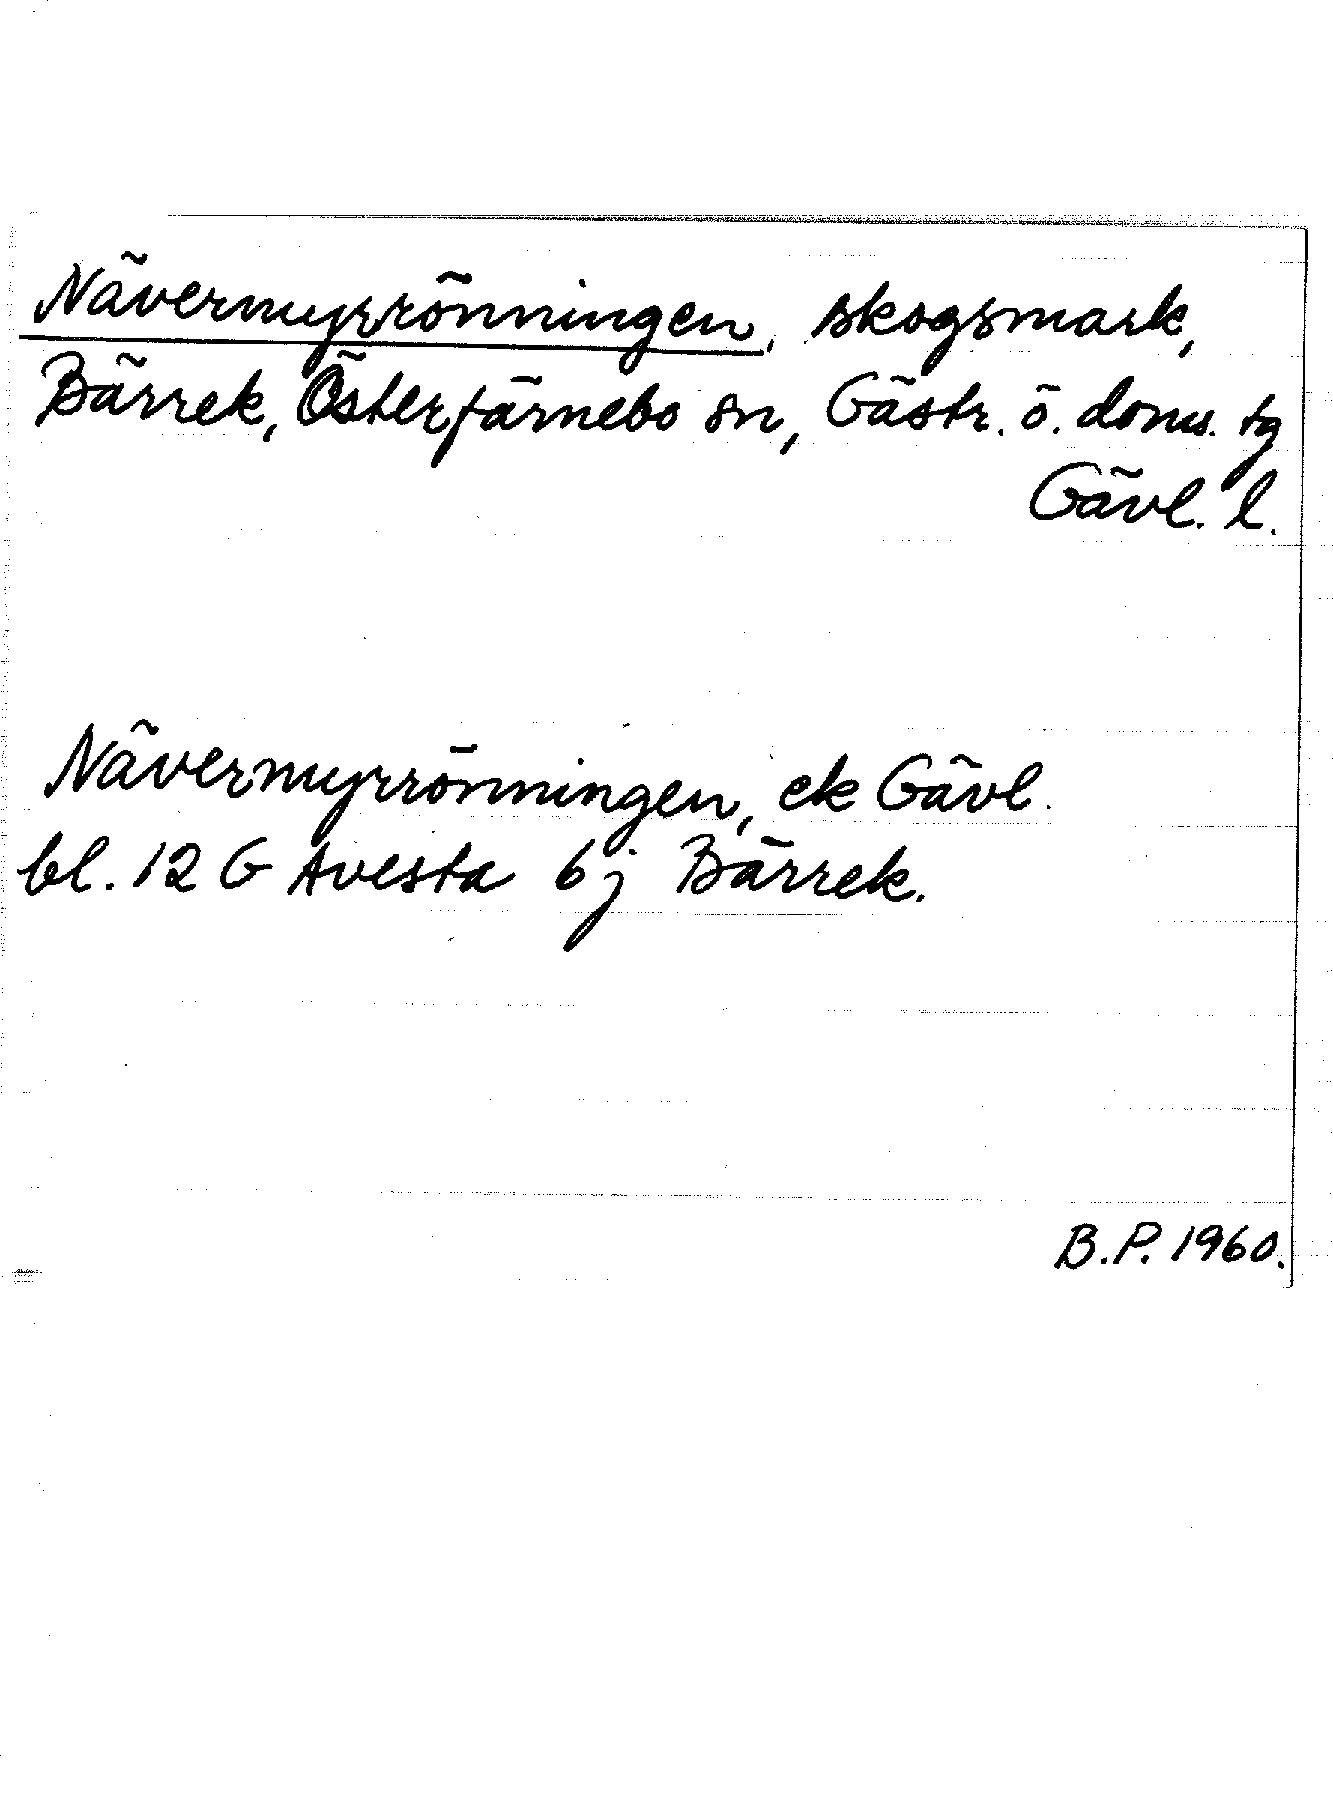 Nävermyrrönningen, skogsmark,
Bärrek, Österfärnebo sn, Gästr. ö. doms. tg
Gävl. l.
Nävermyrrönningen, ek Gävl.
bl. 12 G Avesta 6j Bärrek.
B.P. 1960.